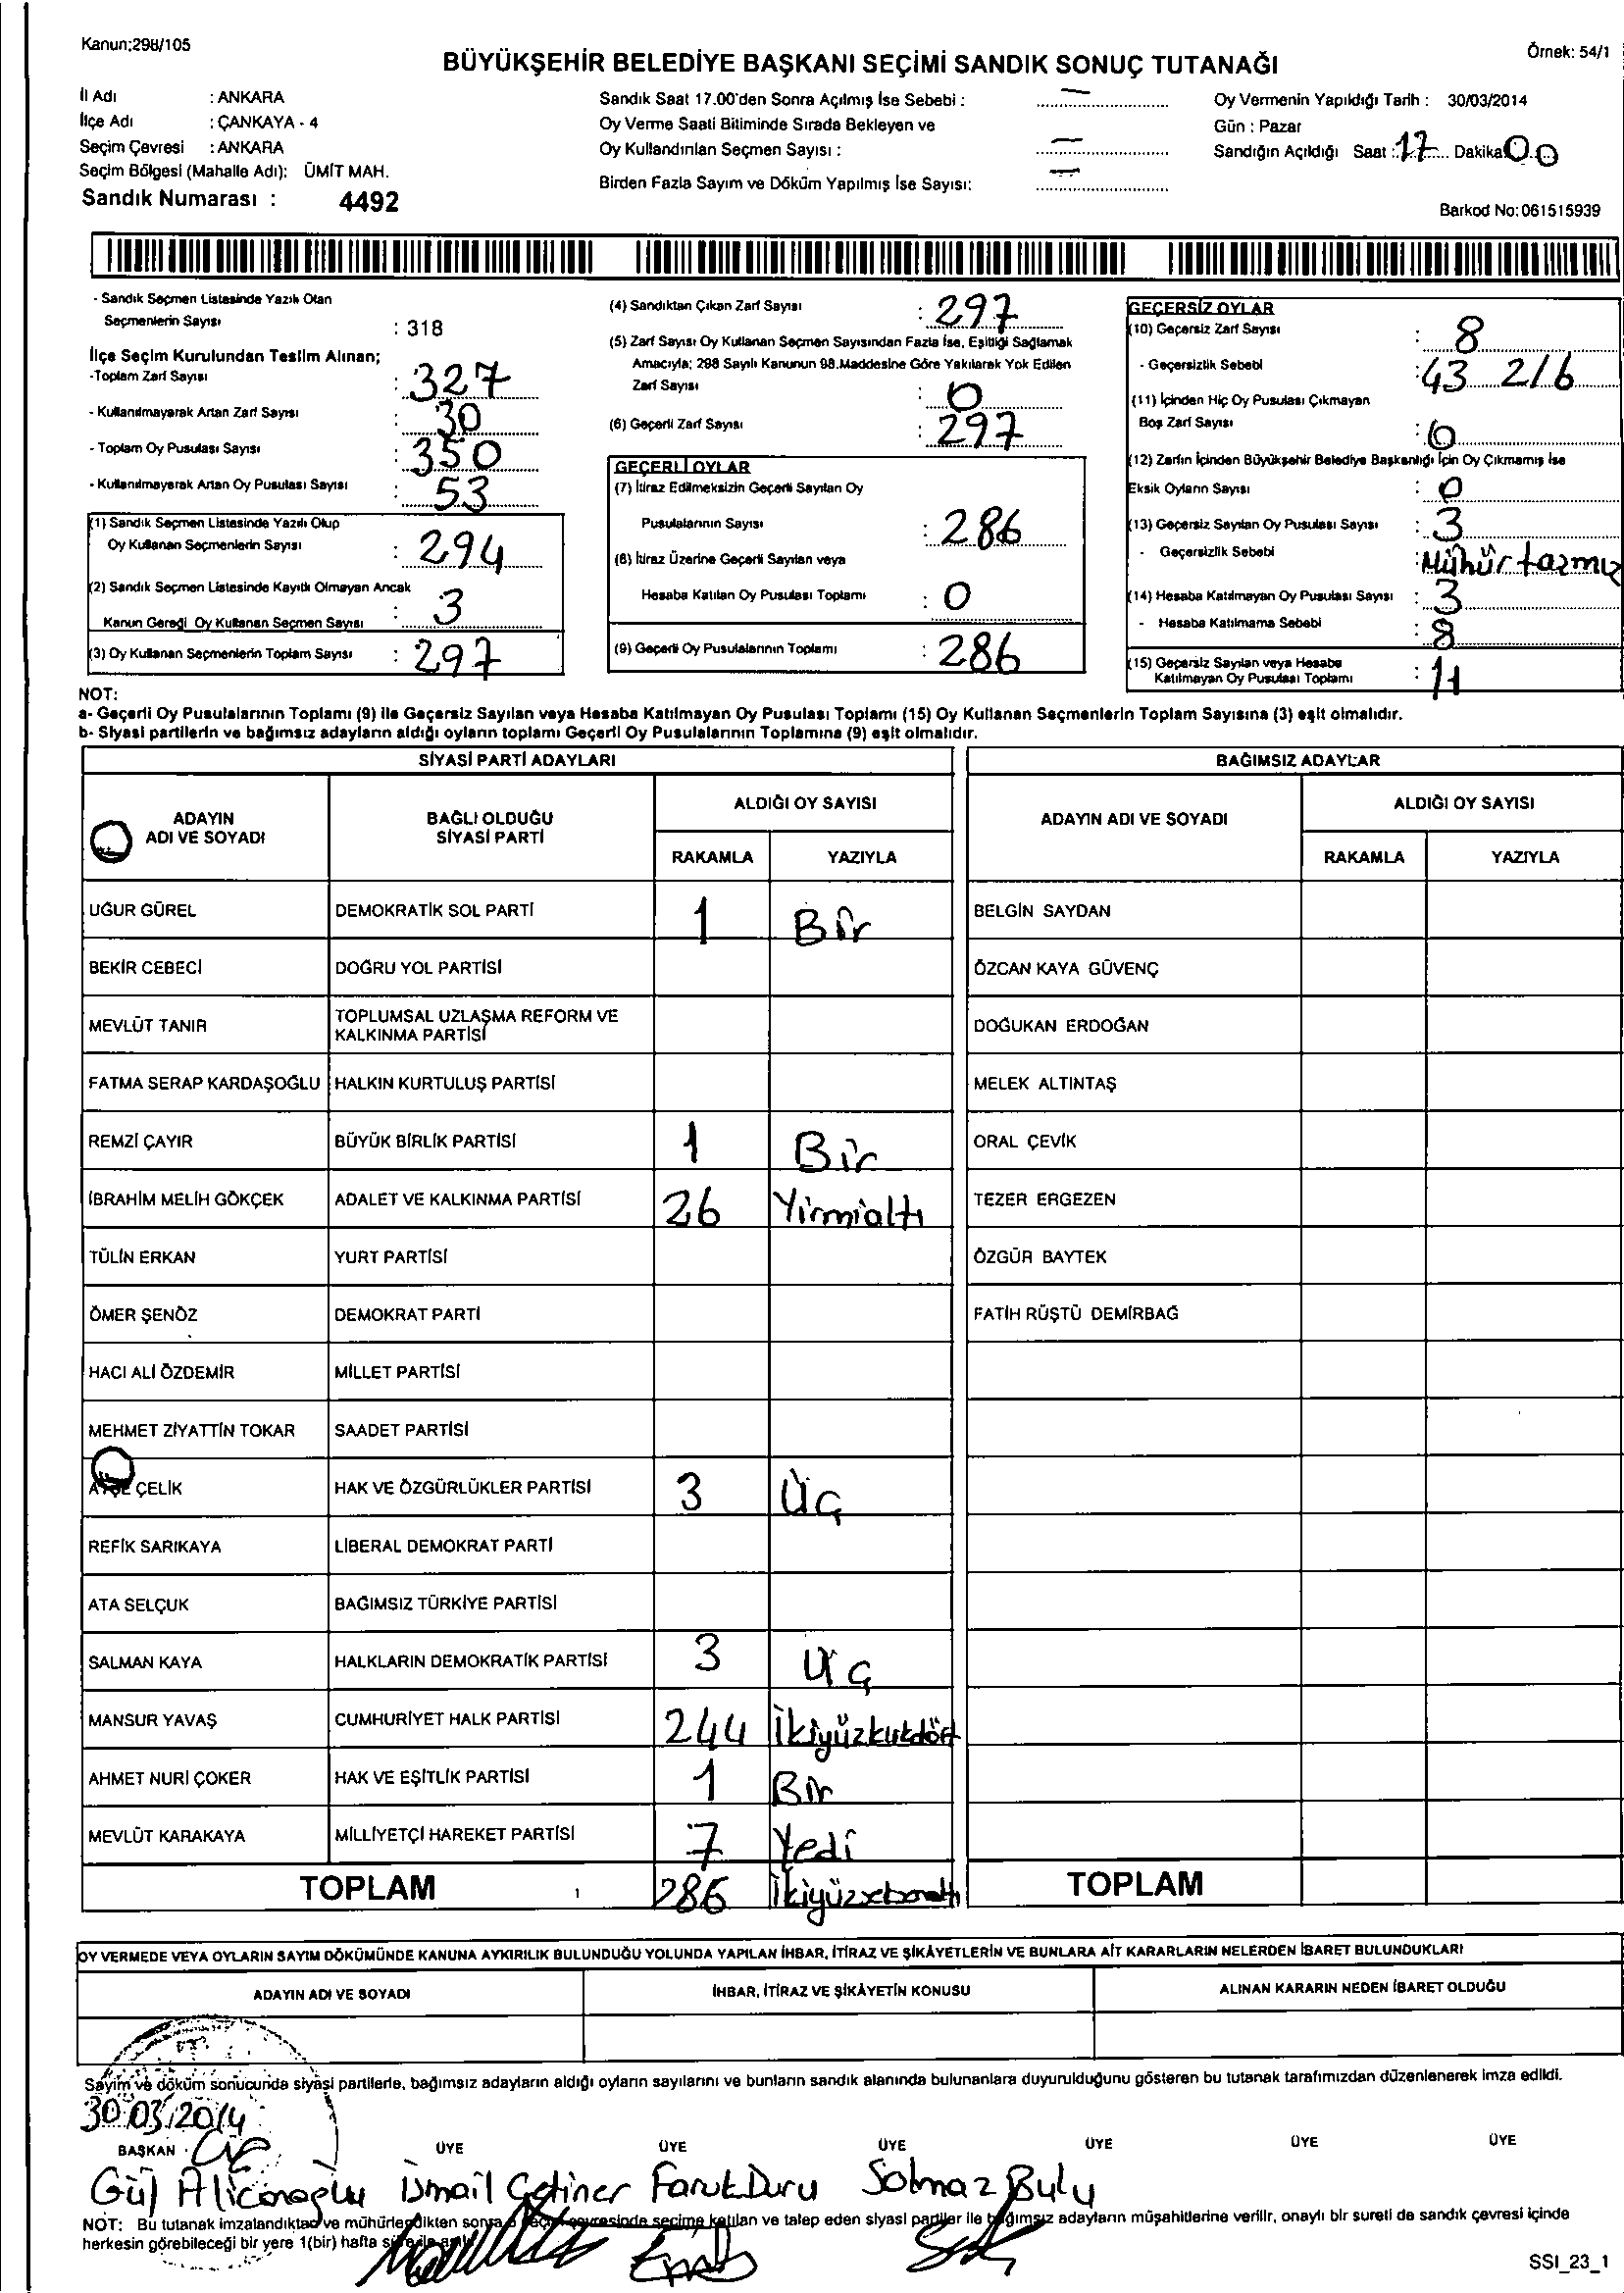 Kanun;298/105
Örnek: 54/1
BÜYÜKŞEHİR BELEDİYE BAŞKANI SEÇİMİ SANDIK SONUÇ TUTANAĞI
İl Adı : ANKARA
İlçe Adı : ÇANKAYA - 4
Seçim Çevresi : ANKARA
Seçim Bölgesi (Mahalle Adı): ÜMİT MAH.
Sandık Numarası : 4492
Sandık Saat 17.00'den Sonra Açılmış İse Sebebi : —
Oy Verme Saati Bitiminde Sırada Bekleyen ve
Oy Kullandırılan Seçmen Sayısı : —
Birden Fazla Sayım ve Döküm Yapılmış İse Sayısı: —
Oy Vermenin Yapıldığı Tarih : 30/03/2014
Gün : Pazar
Sandığın Açıldığı Saat : 17 Dakika 00
Barkod No: 061515939
- Sandık Seçmen Listesinde Yazılı Olan
Seçmenlerin Sayısı : 318
İlçe Seçim Kurulundan Teslim Alınan;
-Toplam Zarf Sayısı : 327
- Kullanılmayarak Artan Zarf Sayısı : 30
- Toplam Oy Pusulası Sayısı : 350
- Kullanılmayarak Artan Oy Pusulası Sayısı : 53
(1) Sandık Seçmen Listesinde Yazılı Olup
Oy Kullanan Seçmenlerin Sayısı : 294
(2) Sandık Seçmen Listesinde Kayıtlı Olmayan Ancak
Kanun Gereği Oy Kullanan Seçmen Sayısı : 3
(3) Oy Kullanan Seçmenlerin Toplam Sayısı : 297
(4) Sandıktan Çıkan Zarf Sayısı : 297
(5) Zarf Sayısı Oy Kullanan Seçmen Sayısından Fazla İse, Eşitliği Sağlamak
Amacıyla; 298 Sayılı Kanunun 98.Maddesine Göre Yakılarak Yok Edilen
Zarf Sayısı : 0
(6) Geçerli Zarf Sayısı : 297
GEÇERLİ OYLAR
(7) İtiraz Edilmeksizin Geçerli Sayılan Oy
Pusulalarının Sayısı : 286
(8) İtiraz Üzerine Geçerli Sayılan veya
Hesaba Katılan Oy Pusulası Toplamı : 0
(9) Geçerli Oy Pusulalarının Toplamı : 286
GEÇERSİZ OYLAR
(10) Geçersiz Zarf Sayısı : 8
- Geçersizlik Sebebi : 43 2/6
(11) İçinden Hiç Oy Pusulası Çıkmayan
Boş Zarf Sayısı : 0
(12) Zarfın İçinden Büyükşehir Belediye Başkanlığı İçin Oy Çıkmamış İse
Eksik Oyların Sayısı : 0
(13) Geçersiz Sayılan Oy Pusulası Sayısı : 3
- Geçersizlik Sebebi : Mühür taşmış
(14) Hesaba Katılmayan Oy Pusulası Sayısı : 3
- Hesaba Katılmama Sebebi : 8
(15) Geçersiz Sayılan veya Hesaba
Katılmayan Oy Pusulası Toplamı : 11
NOT:
a- Geçerli Oy Pusulalarının Toplamı (9) ile Geçersiz Sayılan veya Hesaba Katılmayan Oy Pusulası Toplamı (15) Oy Kullanan Seçmenlerin Toplam Sayısına (3) eşit olmalıdır.
b- Siyasi partilerin ve bağımsız adayların aldığı oyların toplamı Geçerli Oy Pusulalarının Toplamına (9) eşit olmalıdır.
SİYASİ PARTİ ADAYLARI
ADAYIN
ADI VE SOYADI
BAĞLI OLDUĞU
SİYASİ PARTİ
ALDIĞI OY SAYISI
RAKAMLA YAZIYLA
UĞUR GÜREL DEMOKRATİK SOL PARTİ 1 Bir
BEKİR CEBECİ DOĞRU YOL PARTİSİ
MEVLÜT TANIR TOPLUMSAL UZLAŞMA REFORM VE
KALKINMA PARTİSİ
FATMA SERAP KARDAŞOĞLU HALKIN KURTULUŞ PARTİSİ
REMZİ ÇAYIR BÜYÜK BİRLİK PARTİSİ 1 Bir
İBRAHİM MELİH GÖKÇEK ADALET VE KALKINMA PARTİSİ 26 Yirmialtı
TÜLİN ERKAN YURT PARTİSİ
ÖMER ŞENÖZ DEMOKRAT PARTİ
HACI ALİ ÖZDEMİR MİLLET PARTİSİ
MEHMET ZİYATTİN TOKAR SAADET PARTİSİ
AYŞE ÇELİK HAK VE ÖZGÜRLÜKLER PARTİSİ 3 Üç
REFİK SARIKAYA LİBERAL DEMOKRAT PARTİ
ATA SELÇUK BAĞIMSIZ TÜRKİYE PARTİSİ
SALMAN KAYA HALKLARIN DEMOKRATİK PARTİSİ 3 Üç
MANSUR YAVAŞ CUMHURİYET HALK PARTİSİ 244 İkiyüzkırkdört
AHMET NURİ ÇOKER HAK VE EŞİTLİK PARTİSİ 1 Bir
MEVLÜT KARAKAYA MİLLİYETÇİ HAREKET PARTİSİ 7 Yedi
TOPLAM 286 İkiyüzseksenaltı
BAĞIMSIZ ADAYLAR
ADAYIN ADI VE SOYADI
ALDIĞI OY SAYISI
RAKAMLA YAZIYLA
BELGİN SAYDAN
ÖZCAN KAYA GÜVENÇ
DOĞUKAN ERDOĞAN
MELEK ALTINTAŞ
ORAL ÇEVİK
TEZER ERGEZEN
ÖZGÜR BAYTEK
FATİH RÜŞTÜ DEMİRBAĞ
TOPLAM
OY VERMEDE VEYA OYLARIN SAYIM DÖKÜMÜNDE KANUNA AYKIRILIK BULUNDUĞU YOLUNDA YAPILAN İHBAR, İTİRAZ VE ŞİKÂYETLERİN VE BUNLARA AİT KARARLARIN NELERDEN İBARET BULUNDUKLARI
ADAYIN ADI VE SOYADI İHBAR, İTİRAZ VE ŞİKÂYETİN KONUSU ALINAN KARARIN NEDEN İBARET OLDUĞU
Sayım ve döküm sonucunda siyasi partilerle, bağımsız adayların aldığı oyların sayılarını ve bunların sandık alanında bulunanlara duyurulduğunu gösteren bu tutanak tarafımızdan düzenlenerek imza edildi.
30 03/2014
BAŞKAN ÜYE ÜYE ÜYE ÜYE ÜYE ÜYE
Gül İsmail Çetiner Faruk Duru Solmaz Bulu
NOT: Bu tutanak imzalandıktan ve mühürlendikten sonra seçim çevresinde seçime katılan ve talep eden siyasi partiler ile bağımsız adayların müşahitlerine verilir, onaylı bir sureti de sandık çevresi içinde
herkesin görebileceği bir yere 1(bir) hafta süreyle asılır.
SSI_23_1